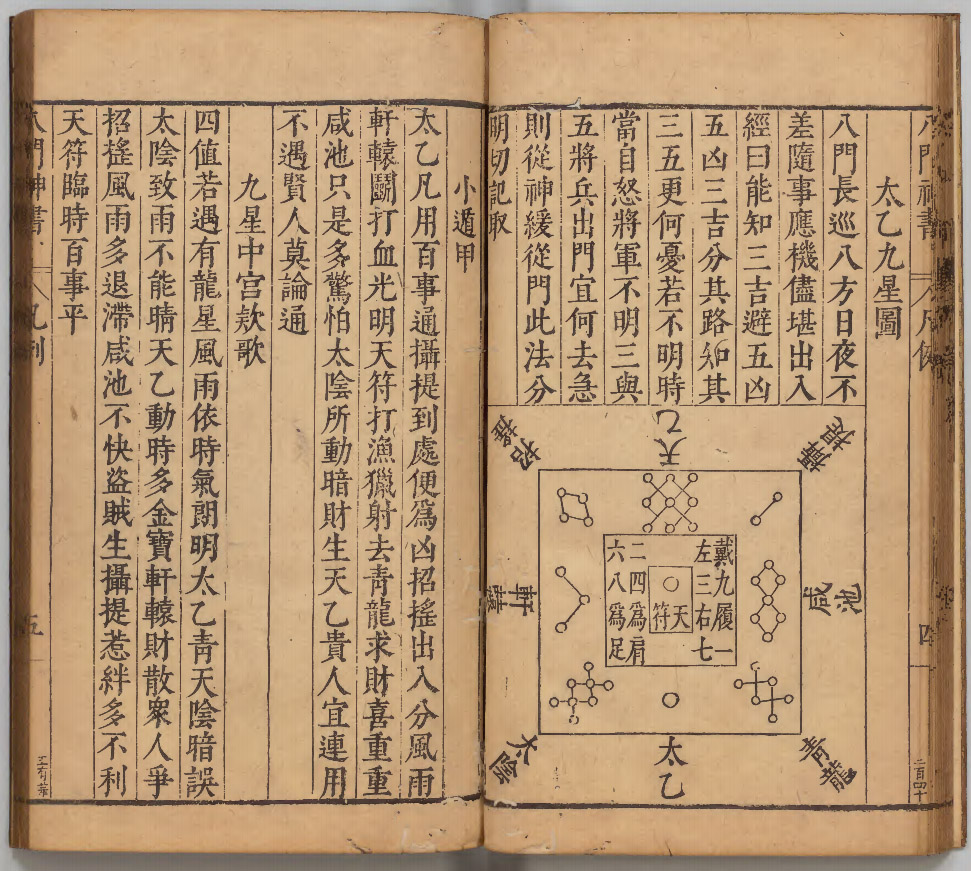 八門神書
八凡例
四
二百四十
太乙九星圖
八門長巡八方日夜不
差隨事應機儘堪出入
經曰能知三吉避五凶
五凶三吉分其路知其
三五更何憂若不明時
當自怒將軍不明三與
五將兵出門宜何去急
則從神緩從門此法分
明切記取
攝提
天乙
招搖
咸池
戴九履一
左三右七
二四為肩
六八為足
天符
軒轅
青龍
太乙
太陰
小遁甲
太乙凡用百事通攝提到處便為凶招搖出入分風雨
軒轅鬭打血光明天符打漁獵射去青龍求財喜重重
咸池只是多驚怕太陰所動暗財生天乙貴人宜連用
不遇賢人莫論通
九星中宮欵歌
四值若遇有龍星風雨依時氣朗明太乙青天陰暗誤
太陰致雨不能晴天乙動時多金寶軒轅財散眾人爭
招搖風雨多退滯咸池不快盜賊生攝提惹絆多不利
天符臨時百事平
八門神書
八凡例
五